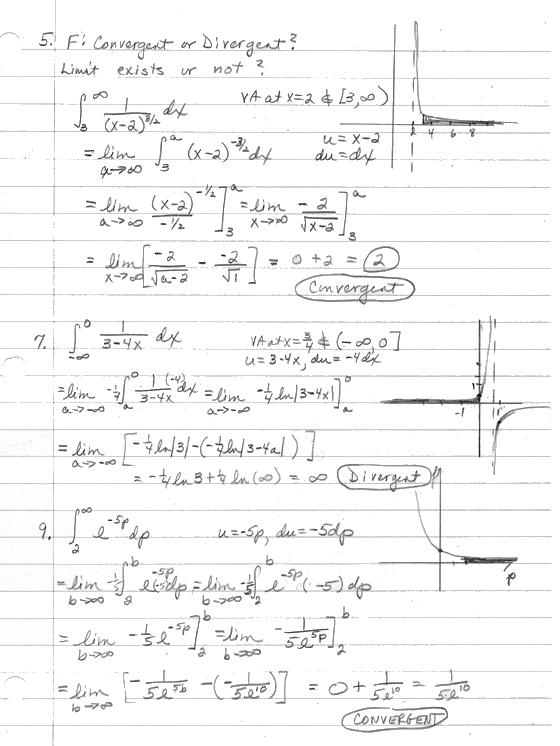 5. F: Convergent or Divergent?
Limit exists or not?
∫_3^∞ 1/(x-2)^{3/2} dx    VA at x=2 & [3,∞)
= lim_{a→∞} ∫_3^a (x-2)^{-3/2} dx    u = x-2
du = dx
2 4 6 8
= lim_{a→∞} (x-2)^{-1/2}/(-1/2) ]_3^a = lim_{x→∞} -2/√(x-2) ]_3^a
= lim_{x→∞} [ -2/√(a-2) - -2/√1 ] = 0 + 2 = 2
Convergent
7. ∫_{-∞}^0 1/(3-4x) dx    VA at x = 3/4 & (-∞,0]
u = 3-4x, du = -4dx
= lim_{a→-∞} -1/4 ∫_a^0 1(-4)/(3-4x) dx = lim_{a→-∞} -1/4 ln|3-4x| ]_a^0
1
-1 1
= lim_{a→-∞} [ -1/4 ln|3| - (-1/4 ln|3-4a|) ]
= -1/4 ln 3 + 1/4 ln(∞) = ∞ Divergent
9. ∫_2^∞ e^{-5p} dp    u = -5p, du = -5dp
p
= lim_{b→∞} -1/5 ∫_2^b e^{-5p}(-5)dp = lim_{b→∞} -1/5 ∫_2^b e^{-5p} (-5) dp
= lim_{b→∞} -1/5 e^{-5p} ]_2^b = lim_{b→∞} -1/(5e^{5p}) ]_2^b
= lim_{b→∞} [ -1/(5e^{5b}) - (-1/(5e^{10})) ] = 0 + 1/(5e^{10}) = 1/(5e^{10})
CONVERGENT